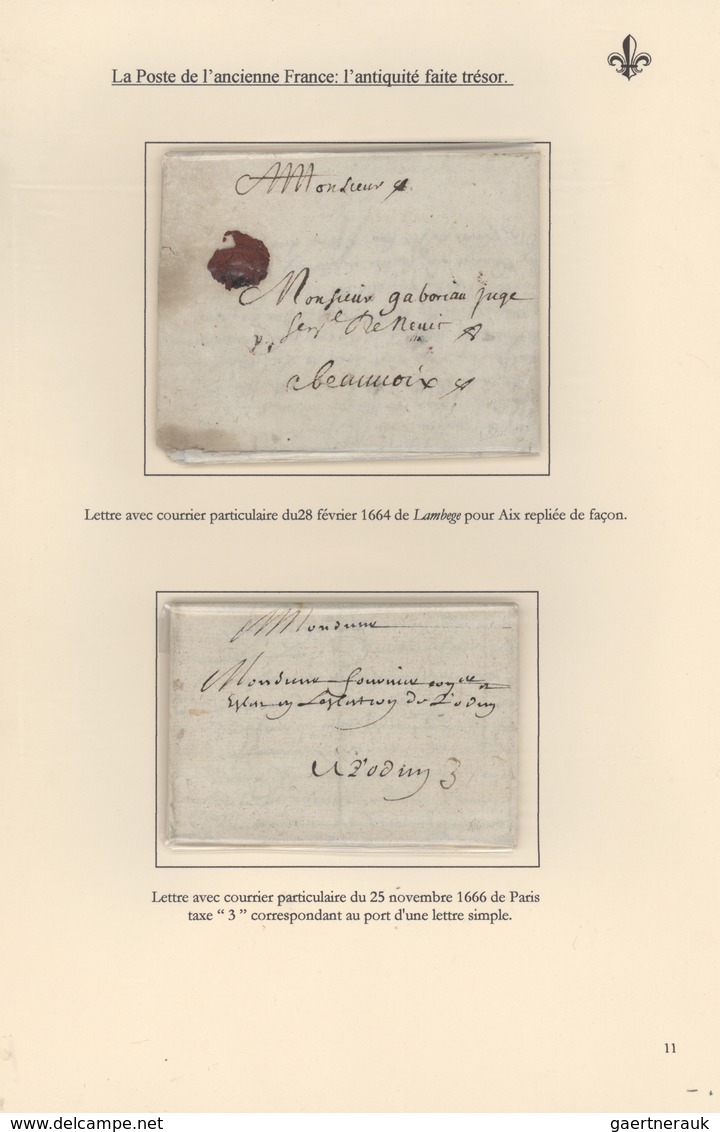 La Poste de l'ancienne France: l'antiquité faite trésor.
Monsieur
Monsieur gaboriau juge
A beauuoix
Lettre avec courrier particulaire du28 février 1664 de Lambege pour Aix repliée de façon.
Monsieur
Monsieur
3
Lettre avec courrier particulaire du 25 novembre 1666 de Paris
taxe “ 3 ” correspondant au port d'une lettre simple.
11
gaertnerauk